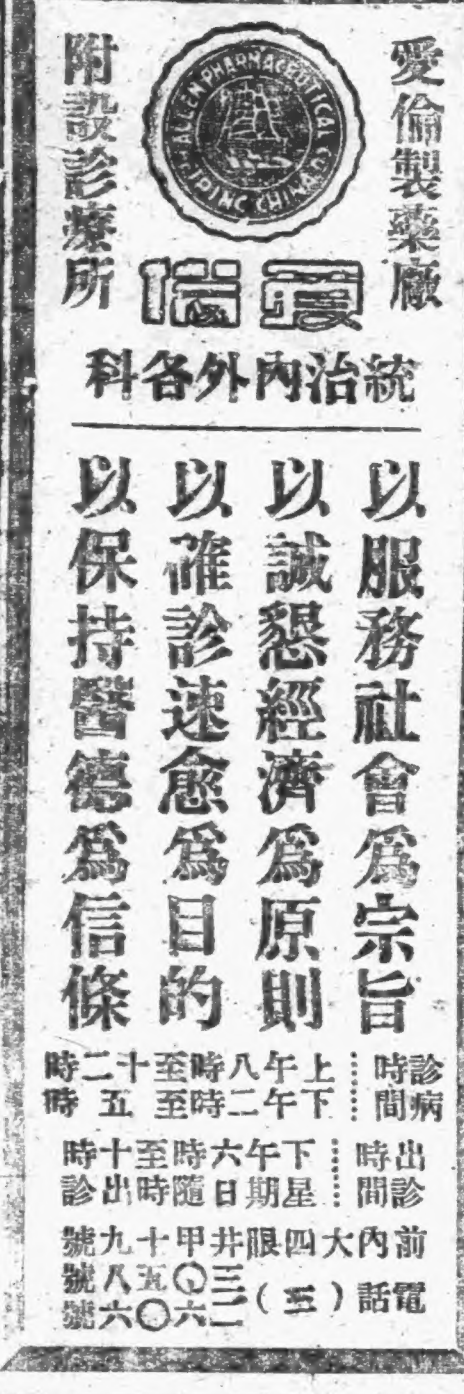 愛倫製藥廠
ALLEN PHARMACEUTICAL CO
PEIPING CHINA
愛倫
附設診療所
統治內外各科
以服務社會爲宗旨
以誠懇經濟爲原則
以確診速愈爲目的
以保持醫德爲信條
診病時間……上午八時至十二時
下午二時至五時
出診時間……下午六時至十時
星期日隨時出診
前內大四眼井甲十九號
電話(五)三〇五八號
二六〇六號